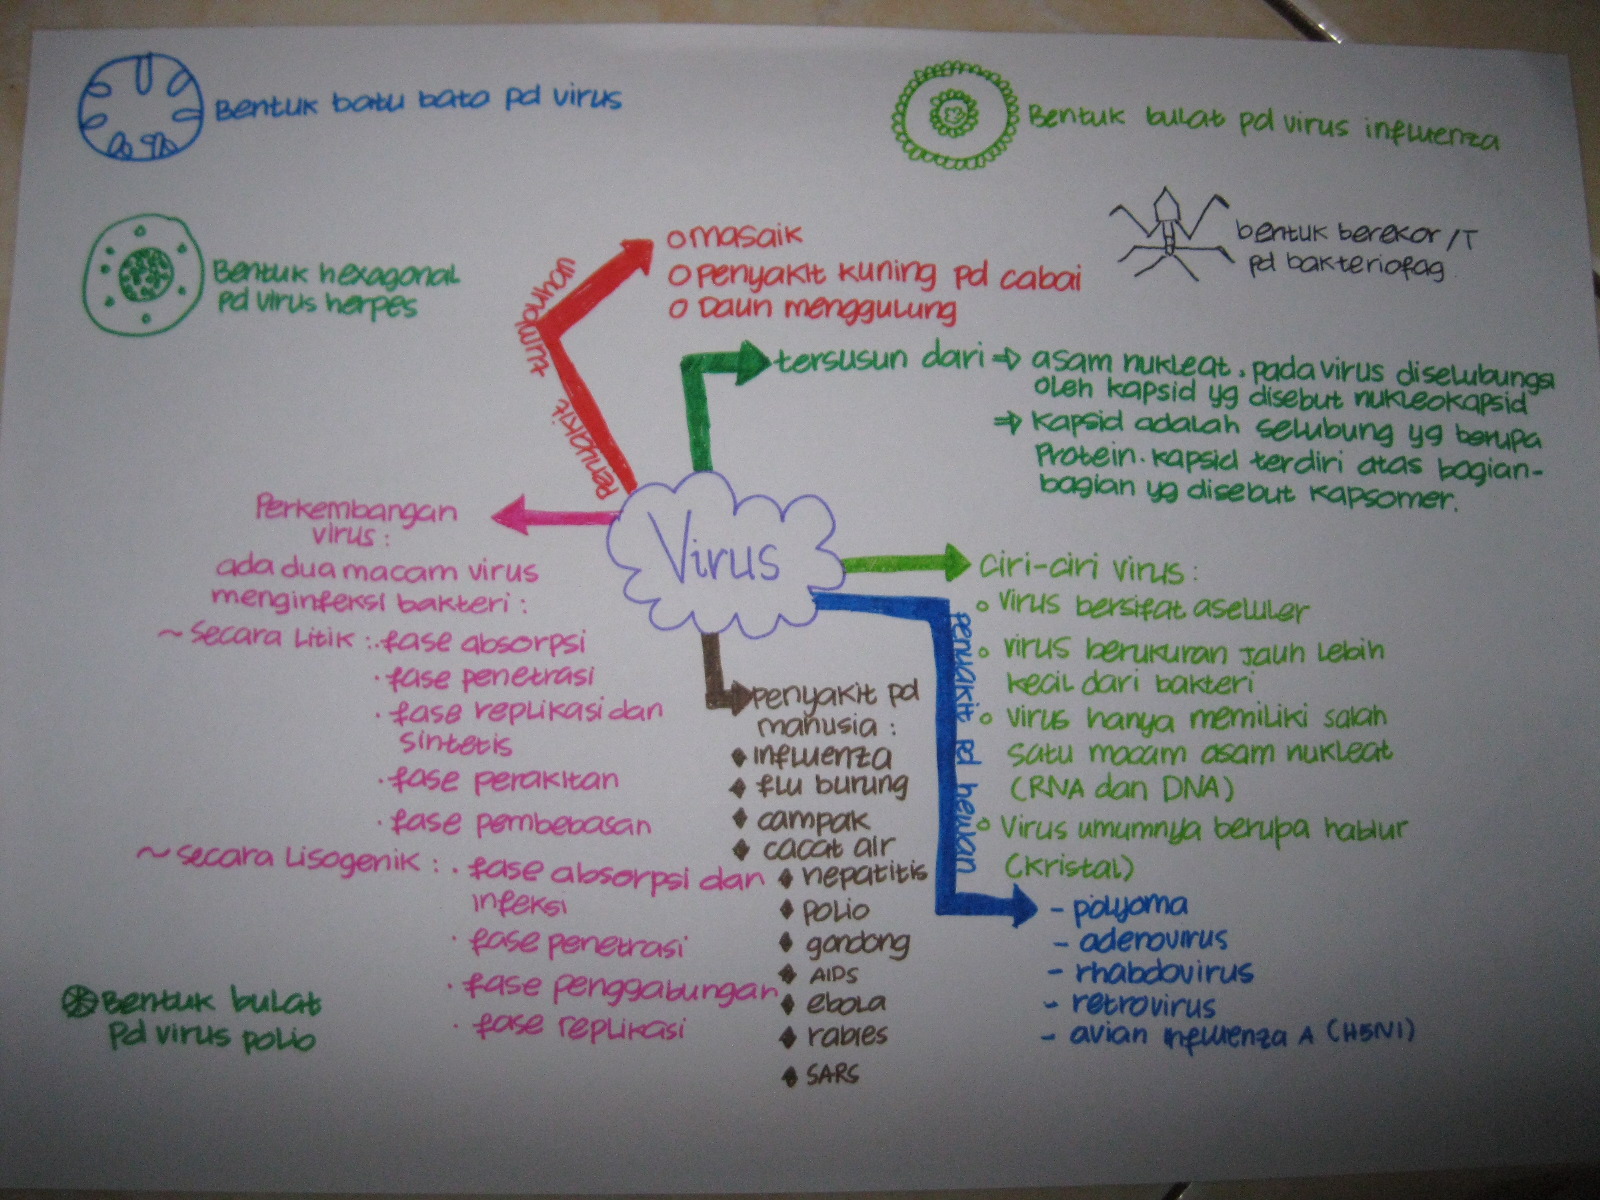 Bentuk batu bata pd virus
Bentuk bulat pd virus influenza
Bentuk hexagonal
pd virus herpes
bentuk berekor /T
pd bakteriofag
Penyakit tumbuhan
o masaik
o penyakit kuning pd cabai
o Daun menggulung
tersusun dari ⇒ asam nukleat. pada virus diselubungi
oleh kapsid yg disebut nukleokapsid
⇒ kapsid adalah selubung yg berupa
Protein. kapsid terdiri atas bagian-
bagian yg disebut kapsomer.
Virus
Perkembangan
virus :
ada dua macam virus
menginfeksi bakteri :
~ Secara Litik : · fase absorpsi
· fase penetrasi
· fase replikasi dan
sintetis
· fase perakitan
· fase pembebasan
~ Secara Lisogenik : · fase absorpsi dan
infeksi
· fase penetrasi
· fase penggabungan
· fase replikasi
Ciri-ciri virus :
o Virus bersifat aseluler
o virus berukuran jauh lebih
kecil dari bakteri
o virus hanya memiliki salah
satu macam asam nukleat
(RNA dan DNA)
o Virus umumnya berupa hablur
(Kristal)
penyakit pd manusia :
♦ influenza
♦ flu burung
♦ campak
♦ cacat air
♦ hepatitis
♦ polio
♦ gondong
♦ AIDS
♦ ebola
♦ rabies
♦ SARS
penyakit pd hewan
- polyoma
- adenovirus
- rhabdovirus
- retrovirus
- avian influenza A (H5N1)
Bentuk bulat
pd virus polio